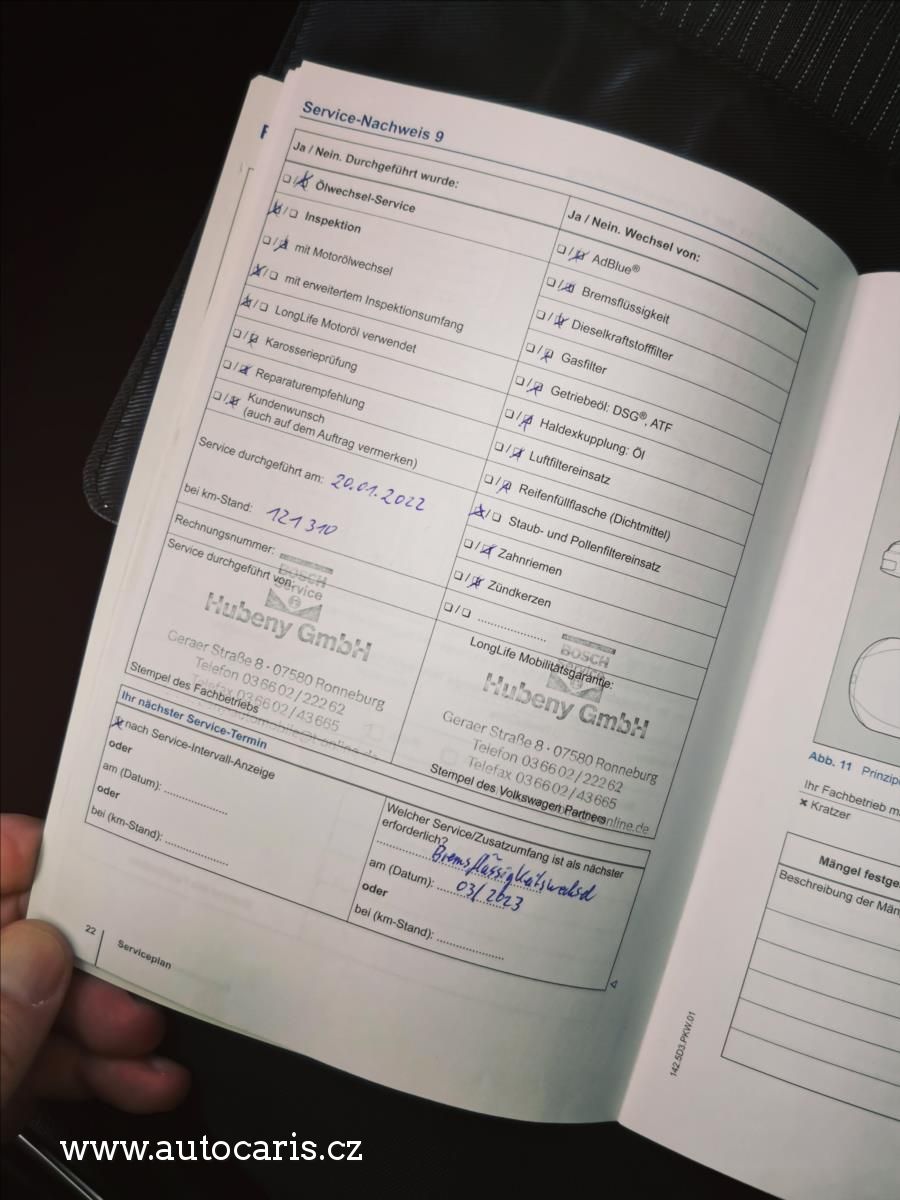 Service-Nachweis 9
Ja / Nein. Durchgeführt wurde:
❏/❏ Ölwechsel-Service
❏/❏ Inspektion
❏/❏ mit Motorölwechsel
❏/❏ mit erweitertem Inspektionsumfang
❏/❏ LongLife Motoröl verwendet
❏/❏ Karosserieprüfung
❏/❏ Reparaturempfehlung
❏/❏ Kundenwunsch
(auch auf dem Auftrag vermerken)
Service durchgeführt am: 20.01.2022
bei km-Stand: 121 310
Rechnungsnummer:
Service durchgeführt von:
BOSCH
Service
Hubeny GmbH
Geraer Straße 8 · 07580 Ronneburg
Telefon 03 66 02 / 222 62
Telefax 03 66 02 / 43 665
Stempel des Fachbetriebs
Ja / Nein. Wechsel von:
❏/❏ AdBlue®
❏/❏ Bremsflüssigkeit
❏/❏ Dieselkraftstofffilter
❏/❏ Gasfilter
❏/❏ Getriebeöl: DSG®, ATF
❏/❏ Haldexkupplung: Öl
❏/❏ Luftfiltereinsatz
❏/❏ Reifenfüllflasche (Dichtmittel)
❏/❏ Staub- und Pollenfiltereinsatz
❏/❏ Zahnriemen
❏/❏ Zündkerzen
❏/❏ ....................
LongLife Mobilitätsgarantie:
BOSCH
Service
Hubeny GmbH
Geraer Straße 8 · 07580 Ronneburg
Telefon 03 66 02 / 222 62
Telefax 03 66 02 / 43 665
Stempel des Volkswagen Partners
Ihr nächster Service-Termin
nach Service-Intervall-Anzeige
oder
am (Datum): ...................
oder
bei (km-Stand): ...................
Welcher Service/Zusatzumfang ist als nächster
erforderlich?
Bremsflüssigkeitswechsel
am (Datum): 03/2023
oder
bei (km-Stand): ...................
22
Serviceplan
142.5D3.PKW.01
Abb. 11 Prinzip
Ihr Fachbetrieb
x Kratzer
Mängel
Beschreibung der
www.autocaris.cz